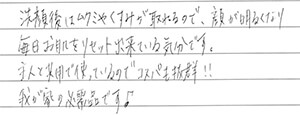 洗顔後はムクミやくすみが取れるので、顔が明るくなり
毎日お肌をリセット出来ている気分です。
主人と共用で使っているのでコスパも抜群!!
我が家の必需品です♪